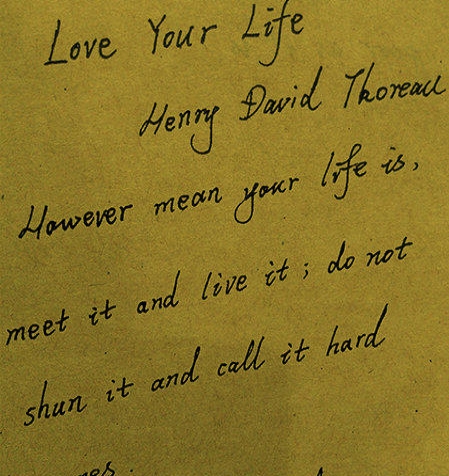 Love Your Life
Henry David Thoreau
However mean your life is,
meet it and live it ; do not
shun it and call it hard